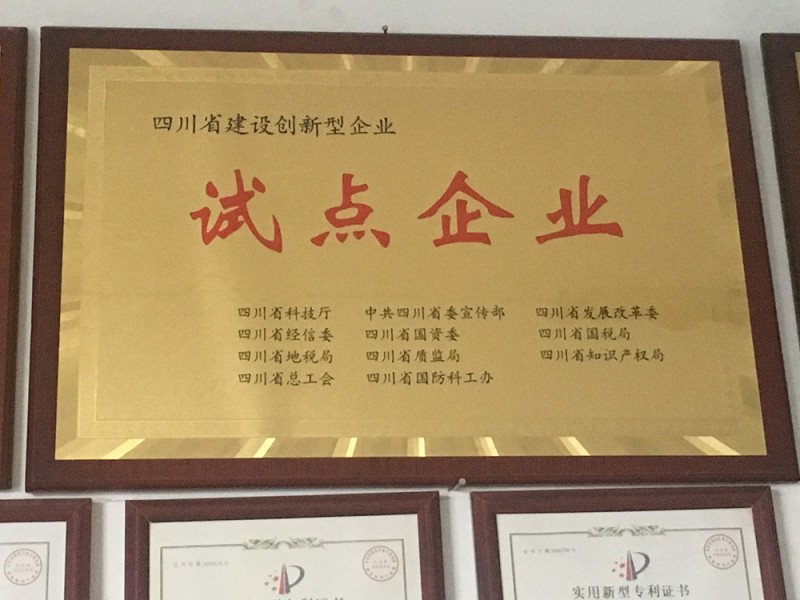 四川省建设创新型企业
试点企业
四川省科技厅 中共四川省委宣传部 四川省发展改革委
四川省经信委 四川省国资委 四川省国税局
四川省地税局 四川省质监局 四川省知识产权局
四川省总工会 四川省国防科工办
实用新型专利证书